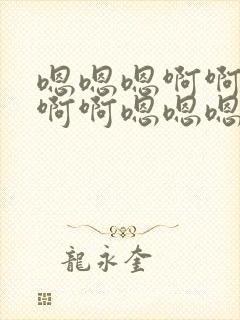 嗯嗯嗯啊啊
啊啊嗯嗯嗯
龍永奎